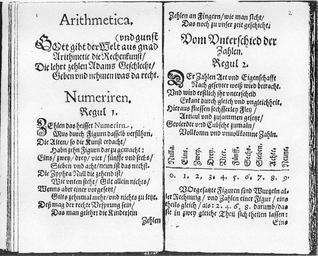 Arithmetica,
(und gunst
Gott gibt der Welt aus gnad
Arithmetic die Rechenkunst/
Die lehrt zehlen Adams Geschlecht/
Geben und nehmen was da recht.
Numeriren.
Regul 1.
Zehlen das heisset Numerirn,
Was durch Figurn dasselb verführn,
Die Alten, so die Kunst erdacht/
Dahn zehn Figurn dar zu gemacht:
Eins/ zwey/ drey/ vier/ fünffe und sechs/
Sieben und acht/neun ist das sechst.
Die Zyphra Null die zehend ist/
Wie unten steht/ Gilt allein nichts/
Wenns aber einer vorgesetzt/
Gilts zehenmal mehr/und nichts zu letzt.
Deß mag der rechte Ursprung sein/
Das man gelehrt die Kinderlein
Zehlen
2
Zehlen an Fingern/ wie man sicht/
Das auch zu unser zeit geschicht.
Vom Unterschied der
Zahlen.
Regul 2.
Der Zahlen Art und Eigenschafft
Nach gesetzter weiß wird betracht.
Und wird erstlich ihr unterscheid
Erkant durch gleich und ungleichheit,
Hieraus fliessen sechserley Fley/
Articul und zusammen gesetzt,
Gevierdte und Cubische zumaln/
Vollkomn und unvollkomne Zahln.
Nulla. Eins. Zwey. Drey. Vier. Fünff. Sechs. Sieben. Acht. Neune.
0. 1. 2. 3. 4. 5. 6. 7. 8. 9.
Vorgesatzte Figuren sind Wurtzeln al-
ler Rechnung/ und Zahlen einer Figur/ eins
theils gleich/ als: 2. 4. 6. 8. darumb/ das
sie in zwey gleiche Theil sich theilen lassen:
Eins